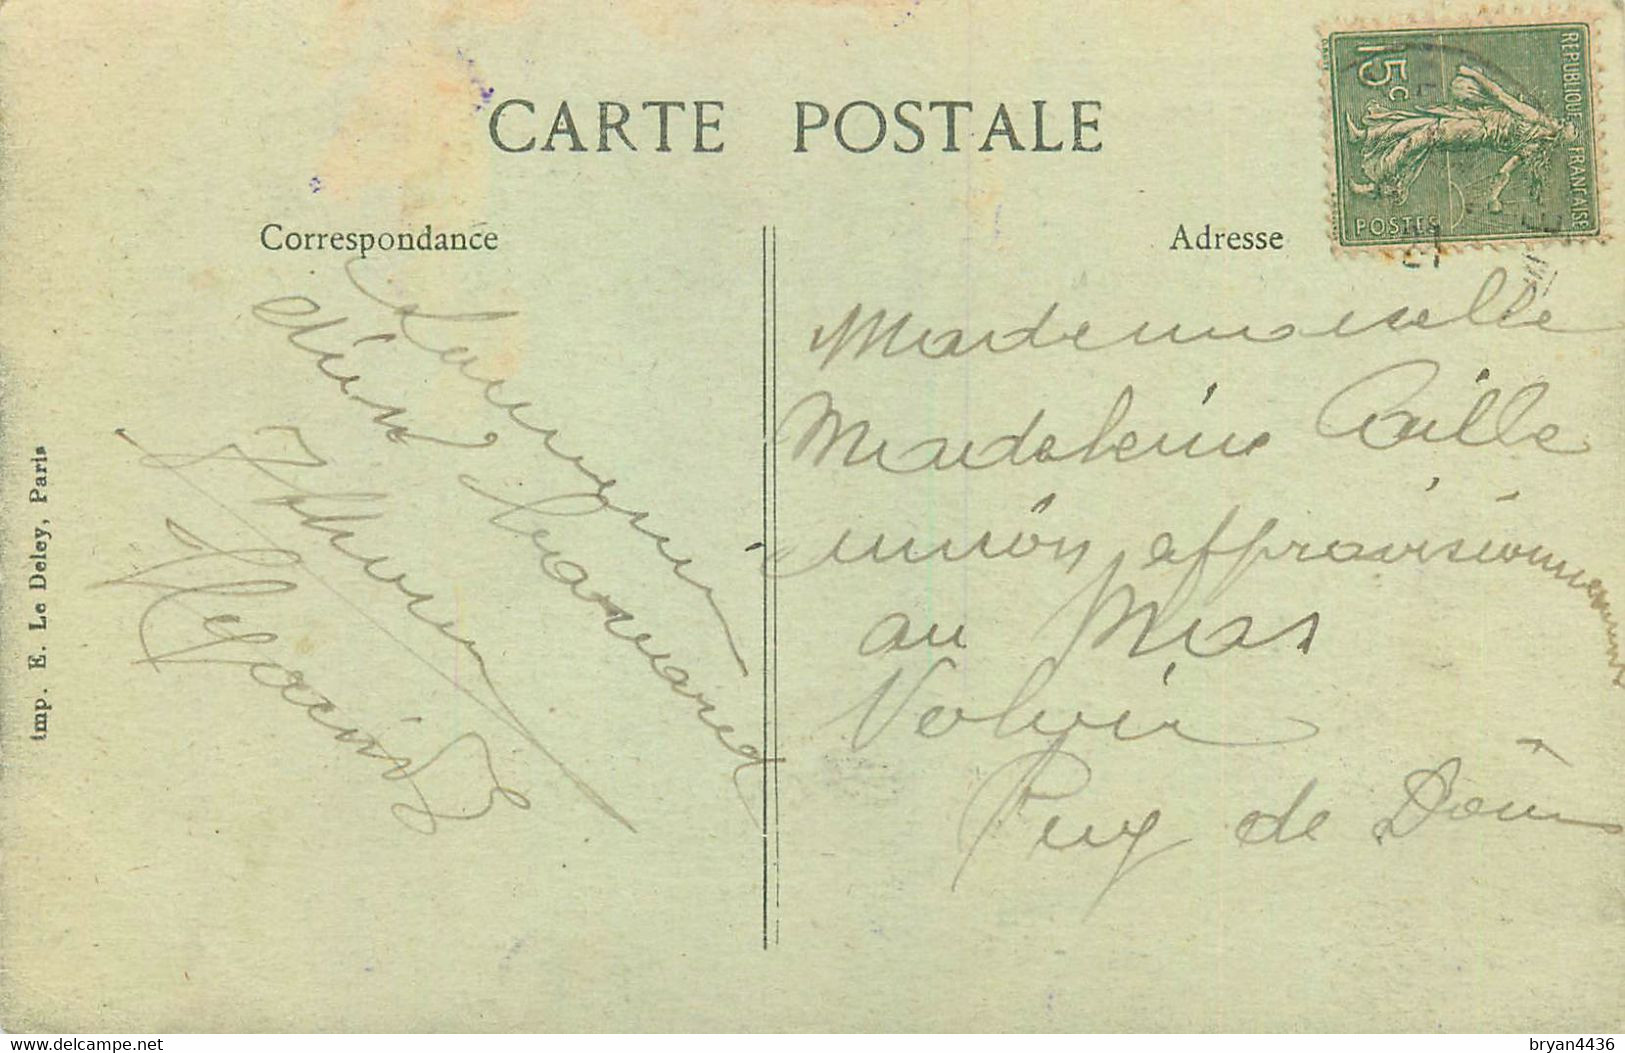 CARTE POSTALE
REPUBLIQUE FRANCAISE
15c
POSTES
Correspondance
Adresse
Souvenir
d'un
Mademoiselle
Madeleine Caille
union approvisionnement
au Mas
Volvic
Puy de Dôme
Imp. E. Le Deley, Paris
www.delcampe.net
bryan4436